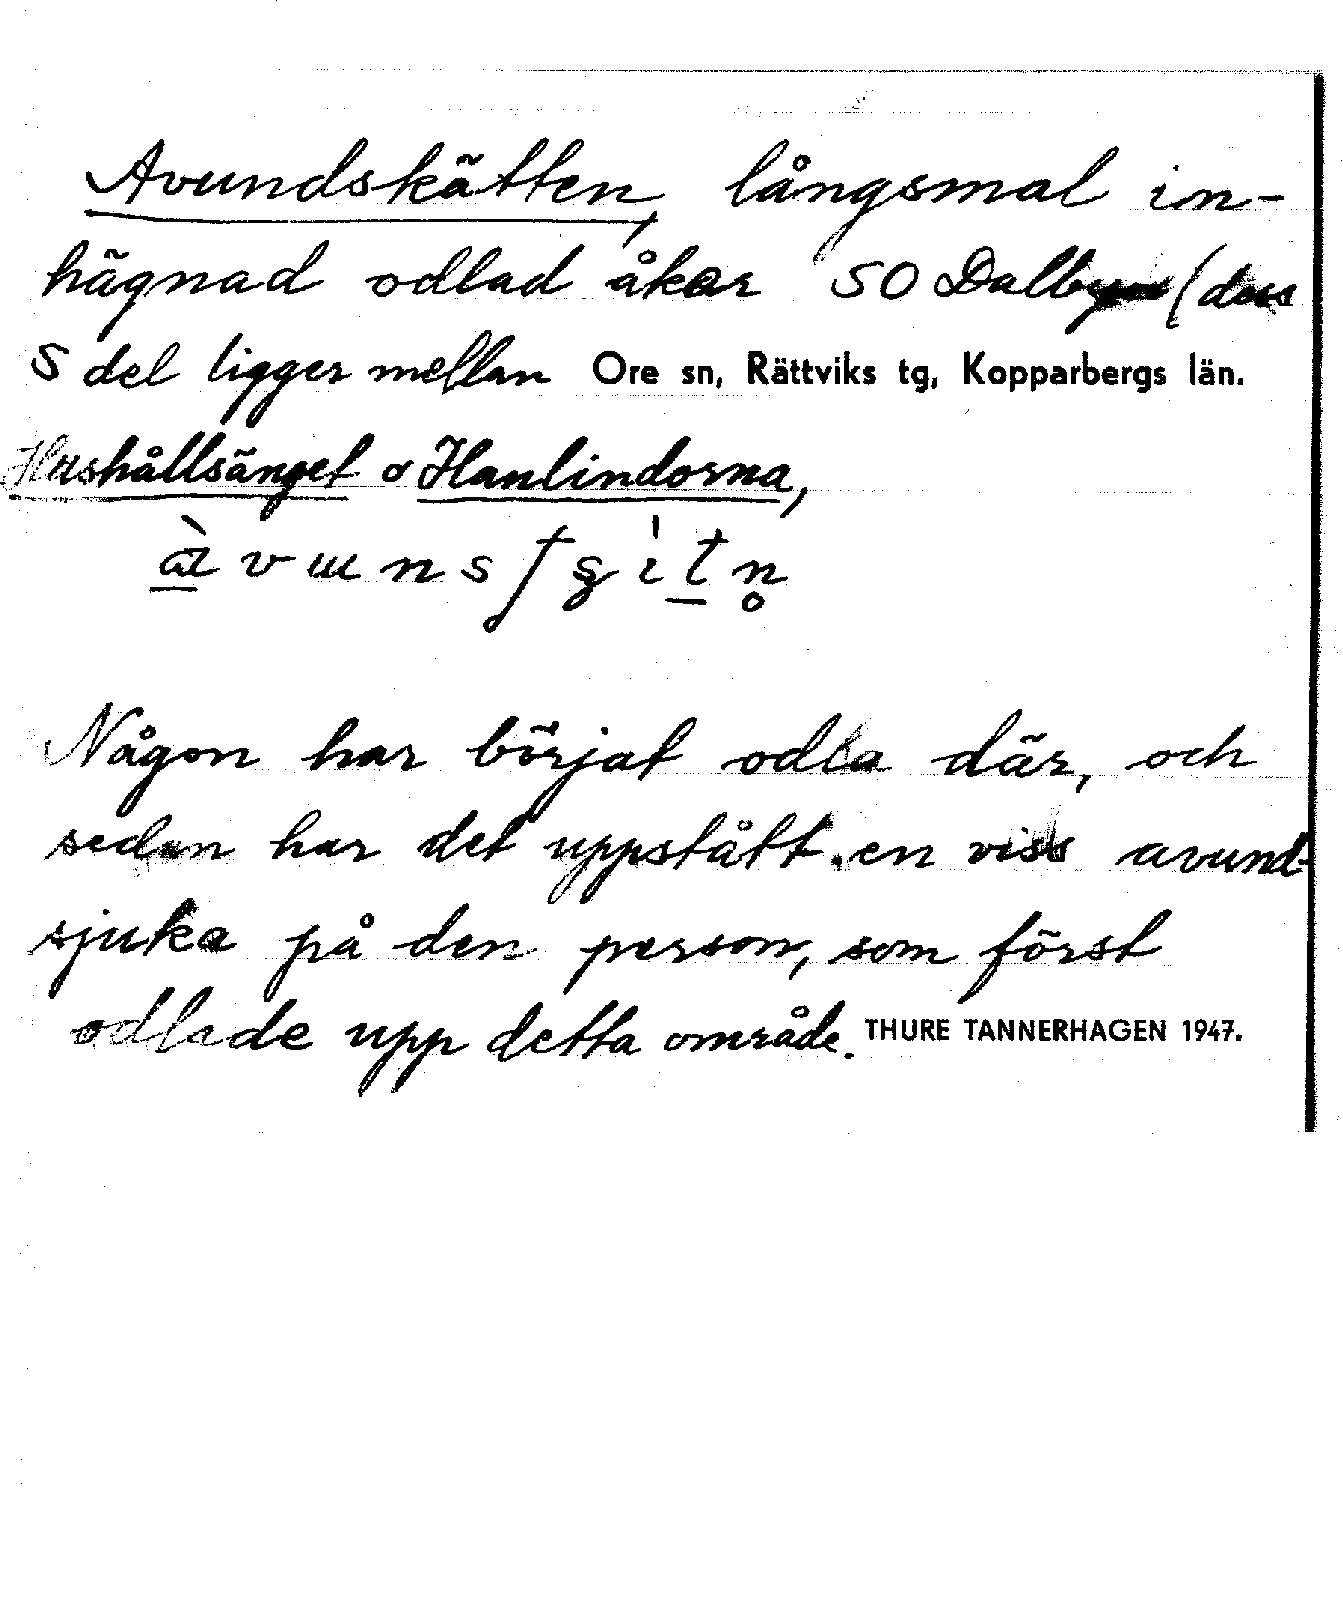 Avundskätten, långsmal in-
hägnad odlad åker SO Dalby (dess
S del ligger mellan Ore sn, Rättviks tg, Kopparbergs län.
Hushållsänget o Hanlindorna,
Någon har börjat odla där, och
sedan har det uppstått en viss avund-
sjuka på den person, som först
odlade upp detta område. THURE TANNERHAGEN 1947.